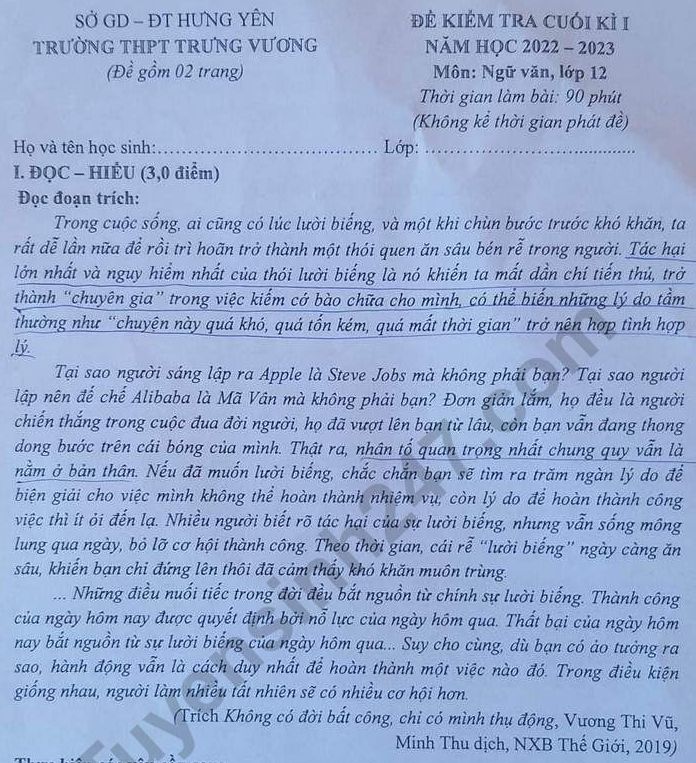 SỞ GD – ĐT HƯNG YÊN
TRƯỜNG THPT TRƯNG VƯƠNG
(Đề gồm 02 trang)
ĐỀ KIỂM TRA CUỐI KÌ I
NĂM HỌC 2022 – 2023
Môn: Ngữ văn, lớp 12
Thời gian làm bài: 90 phút
(Không kể thời gian phát đề)
Họ và tên học sinh:.................................... Lớp: ..................................
I. ĐỌC – HIỂU (3,0 điểm)
Đọc đoạn trích:
Trong cuộc sống, ai cũng có lúc lười biếng, và một khi chùn bước trước khó khăn, ta
rất dễ lần nữa để rồi trì hoãn trở thành một thói quen ăn sâu bén rễ trong người. Tác hại
lớn nhất và nguy hiểm nhất của thói lười biếng là nó khiến ta mất dần chí tiến thủ, trở
thành “chuyên gia” trong việc kiếm cớ bào chữa cho mình, có thể biến những lý do tầm
thường như “chuyện này quá khó, quá tốn kém, quá mất thời gian” trở nên hợp tình hợp
lý.
Tại sao người sáng lập ra Apple là Steve Jobs mà không phải bạn? Tại sao người
lập nên đế chế Alibaba là Mã Vân mà không phải bạn? Đơn giản lắm, họ đều là người
chiến thắng trong cuộc đua đời người, họ đã vượt lên bạn từ lâu, còn bạn vẫn đang thong
dong bước trên cái bóng của mình. Thật ra, nhân tố quan trọng nhất chung quy vẫn là
nằm ở bản thân. Nếu đã muốn lười biếng, chắc chắn bạn sẽ tìm ra trăm ngàn lý do để
biện giải cho việc mình không thể hoàn thành nhiệm vụ, còn lý do để hoàn thành công
việc thì ít ỏi đến lạ. Nhiều người biết rõ tác hại của sự lười biếng, nhưng vẫn sống mông
lung qua ngày, bỏ lỡ cơ hội thành công. Theo thời gian, cái rễ “lười biếng” ngày càng ăn
sâu, khiến bạn chỉ đứng lên thôi đã cảm thấy khó khăn muôn trùng.
... Những điều nuối tiếc trong đời đều bắt nguồn từ chính sự lười biếng. Thành công
của ngày hôm nay được quyết định bởi nỗ lực của ngày hôm qua. Thất bại của ngày hôm
nay bắt nguồn từ sự lười biếng của ngày hôm qua... Suy cho cùng, dù bạn có ảo tưởng ra
sao, hành động vẫn là cách duy nhất để hoàn thành một việc nào đó. Trong điều kiện
giống nhau, người làm nhiều tất nhiên sẽ có nhiều cơ hội hơn.
(Trích Không có đời bất công, chỉ có mình thụ động, Vương Thi Vũ,
Minh Thu dịch, NXB Thế Giới, 2019)
Tuyensinh247.com